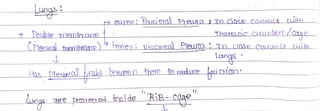 Lungs:
→ outer: Parietal Pleura: In close contact with
→ Double membrane Thoracic chamber/cage
(Pleural membrane) → inner: Visceral Pleura: In close contact with
↓ Lungs.
Has pleural fluid between them to reduce friction.
Lungs are protected inside "RIB-cage"